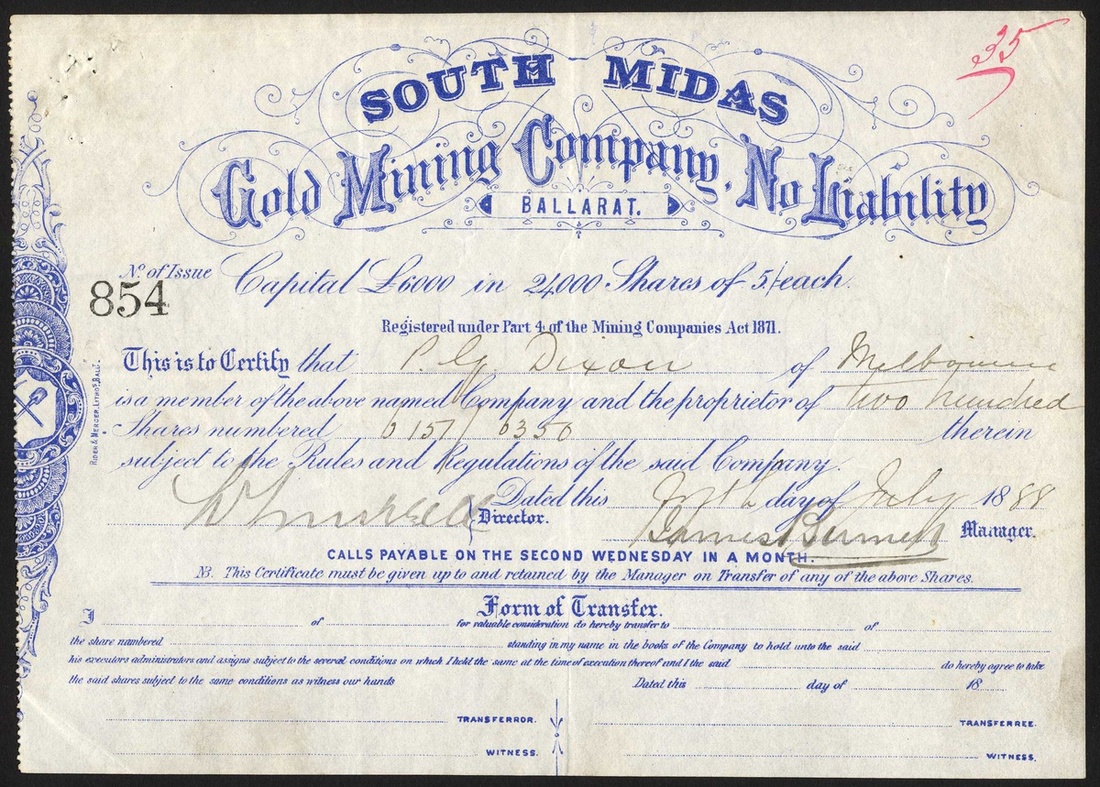 35
SOUTH MIDAS
Gold Mining Company, No Liability
BALLARAT.
No. of Issue
854
Capital £6000 in 24,000 Shares of 5/- each.
Registered under Part 4 of the Mining Companies Act 1871.
This is to Certify that P. G. Dixon of Melbourne
is a member of the above named Company and the proprietor of Two hundred
Shares numbered 6151/6350 therein
subject to the Rules and Regulations of the said Company.
Dated this day of July 1888
Director. James Manager.
CALLS PAYABLE ON THE SECOND WEDNESDAY IN A MONTH.
NB. This Certificate must be given up to and retained by the Manager on Transfer of any of the above Shares.
Form of Transfer.
I of for valuable consideration do hereby transfer to of
the share numbered standing in my name in the books of the Company to hold unto the said
his executors administrators and assigns subject to the several conditions on which I held the same at the time of execution thereof and I the said do hereby agree to take
the said shares subject to the same conditions as witness our hands Dated this day of 18
TRANSFERROR. TRANSFEREE.
WITNESS. WITNESS.